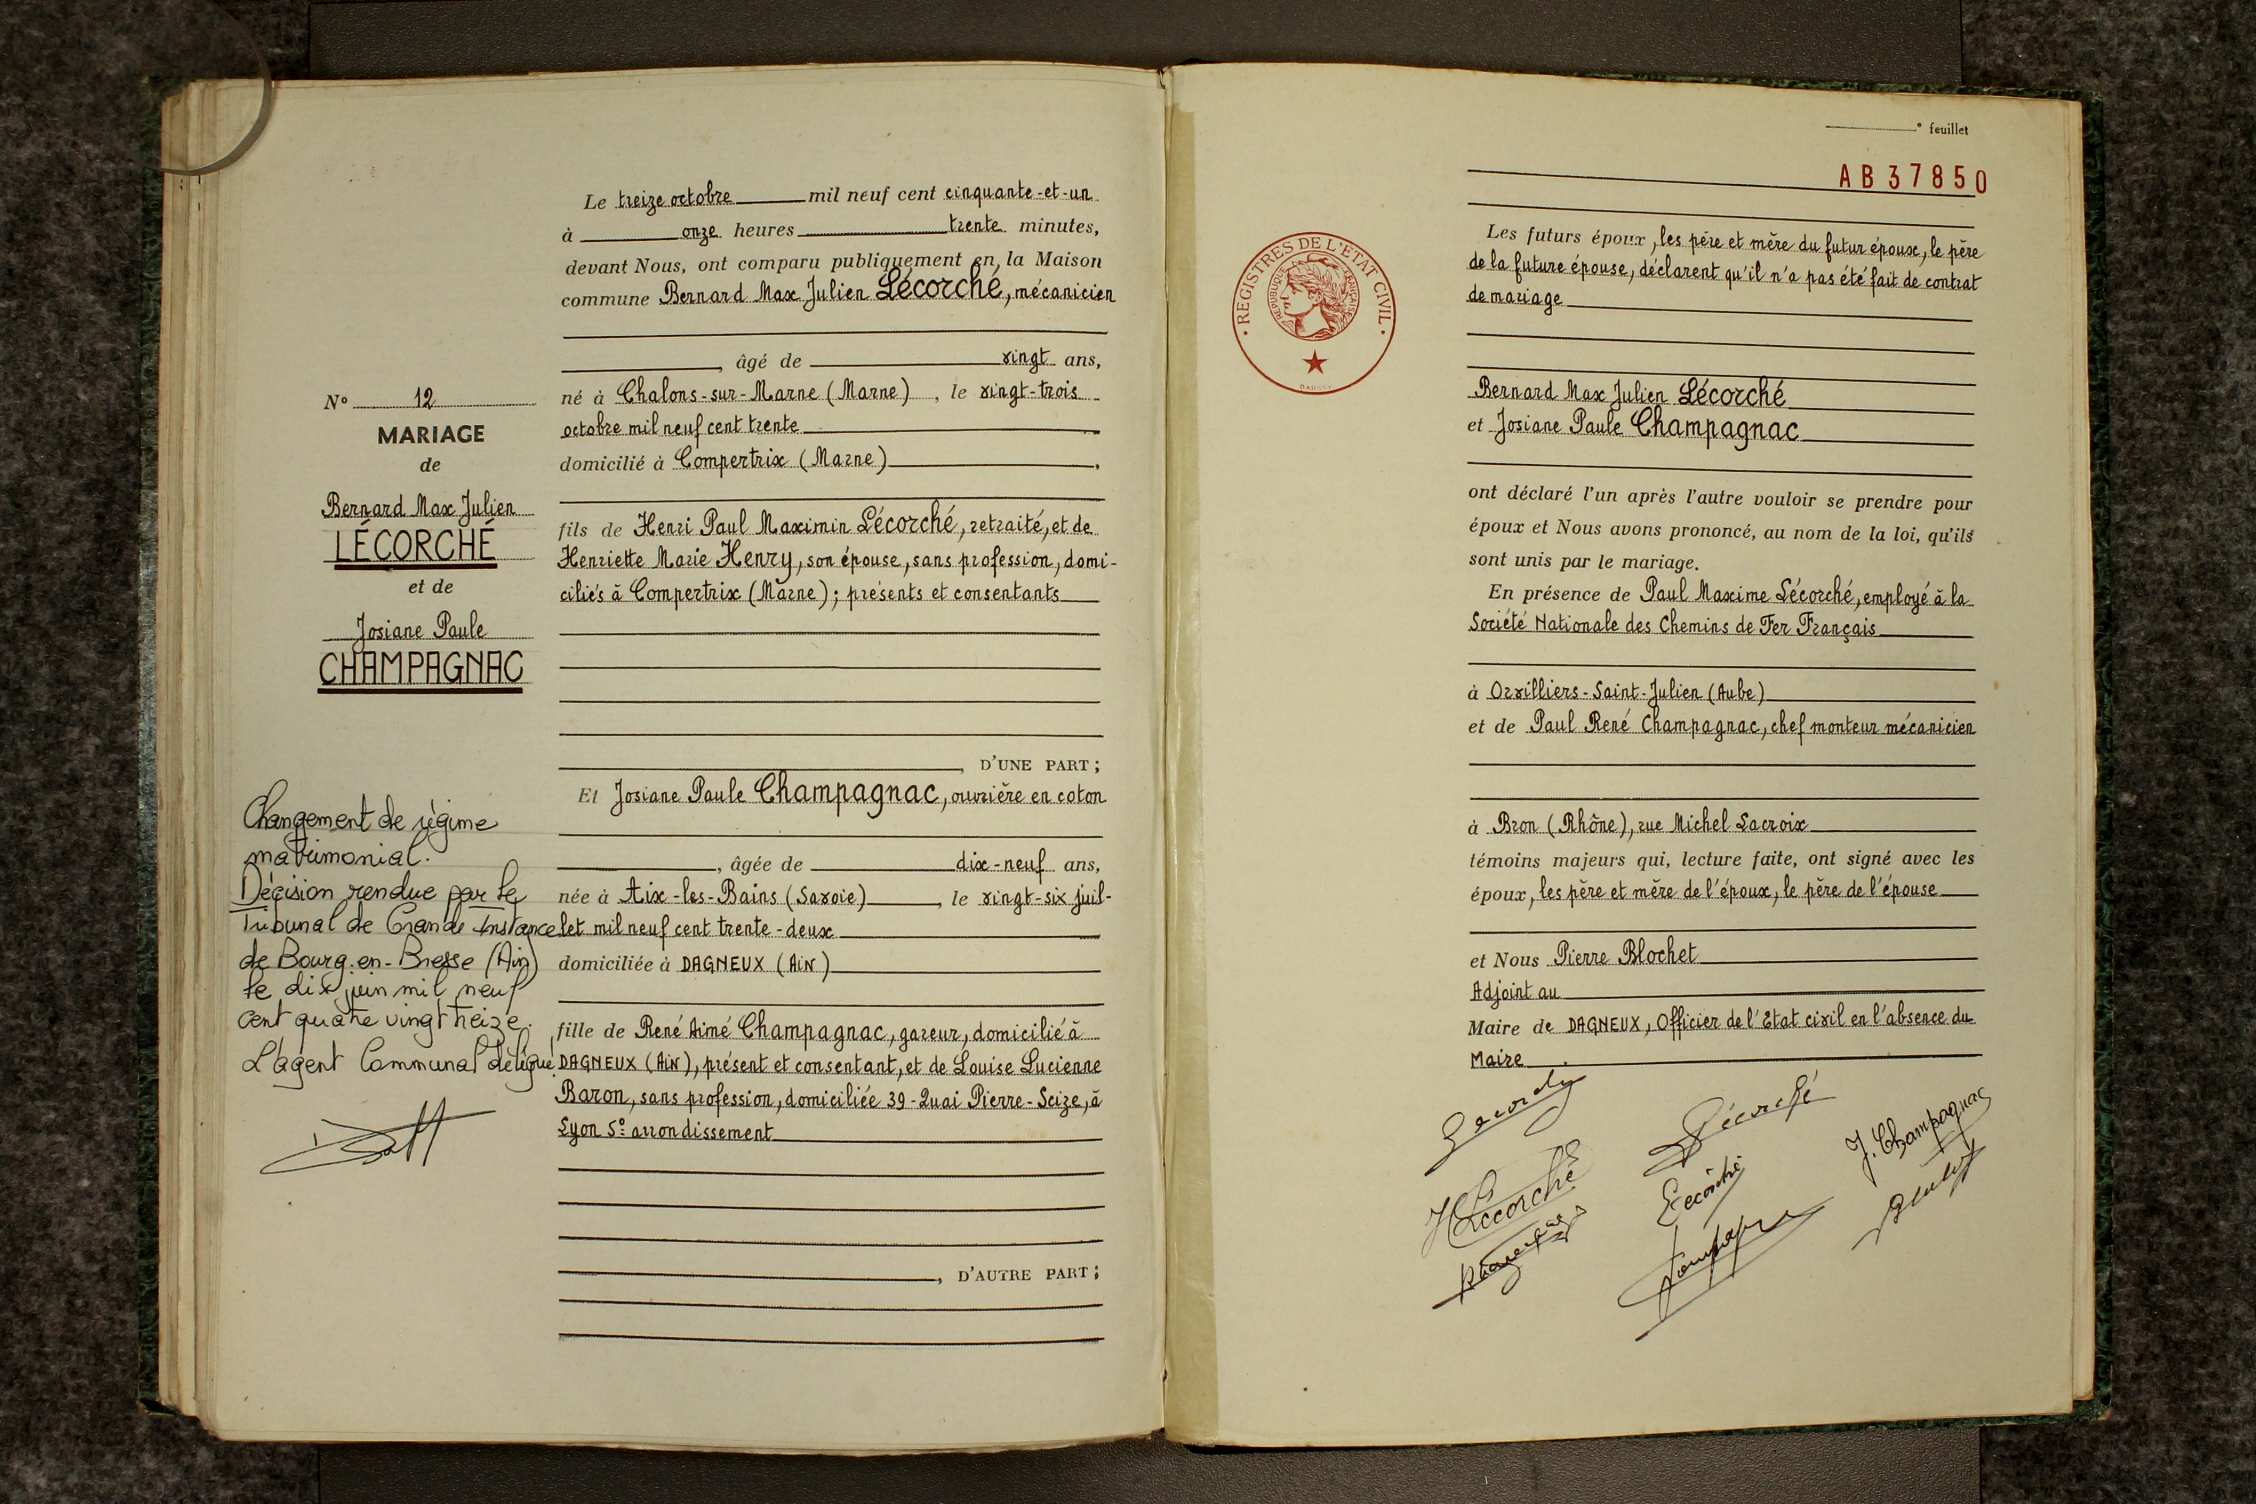 Le treize octobre mil neuf cent cinquante-et-un
à onze heures trente minutes,
devant Nous, ont comparu publiquement en la Maison
commune Bernard Max Julien Lécorché, mécanicien
, âgé de vingt ans,
né à Chalons-sur-Marne (Marne), le vingt-trois
octobre mil neuf cent trente
domicilié à Compertrix (Marne).
fils de Henri Paul Maximin Lécorché, retraité, et de
Henriette Marie Henry, son épouse, sans profession, domi-
ciliés à Compertrix (Marne); présents et consentants
, D'UNE PART;
Et Josiane Paule Champagnac, ouvrière en coton
, âgée de dix-neuf ans,
née à Aix-les-Bains (Savoie), le vingt-six juil-
let mil neuf cent trente-deux
domiciliée à DAGNEUX (AiN)
fille de René Aimé Champagnac, gazeur, domicilié à
DAGNEUX (AiN), présent et consentant, et de Louise Lucienne
Baron, sans profession, domiciliée 39-Quai Pierre-Scize, à
Lyon 5º arrondissement
, D'AUTRE PART;
Nº 12
MARIAGE
de
Bernard Max Julien
LÉCORCHÉ
et de
Josiane Paule
CHAMPAGNAC
Changement de régime
matrimonial.
Décision rendue par le
Tribunal de Grande Instance
de Bourg-en-Bresse (Ain)
le dix juin mil neuf
cent quatre vingt treize.
L'agent Communal délégué.
º feuillet
AB37850
REGISTRES DE L'ETAT CIVIL
REPUBLIQUE FRANÇAISE
Les futurs époux, les père et mère du futur époux, le père
de la future épouse, déclarent qu'il n'a pas été fait de contrat
de mariage
Bernard Max Julien Lécorché
et Josiane Paule Champagnac
ont déclaré l'un après l'autre vouloir se prendre pour
époux et Nous avons prononcé, au nom de la loi, qu'ils
sont unis par le mariage.
En présence de Paul Maxime Lécorché, employé à la
Société Nationale des Chemins de Fer Français
à Orvilliers-Saint-Julien (Aube)
et de Paul René Champagnac, chef monteur mécanicien
à Bron (Rhône), rue Michel Lacroix
témoins majeurs qui, lecture faite, ont signé avec les
époux, les père et mère de l'époux, le père de l'épouse
et Nous Pierre Blochet
Adjoint au
Maire de DAGNEUX, Officier de l'Etat civil en l'absence du
Maire.
Lécorché
J. Champagnac
H Lécorché
Lécorché